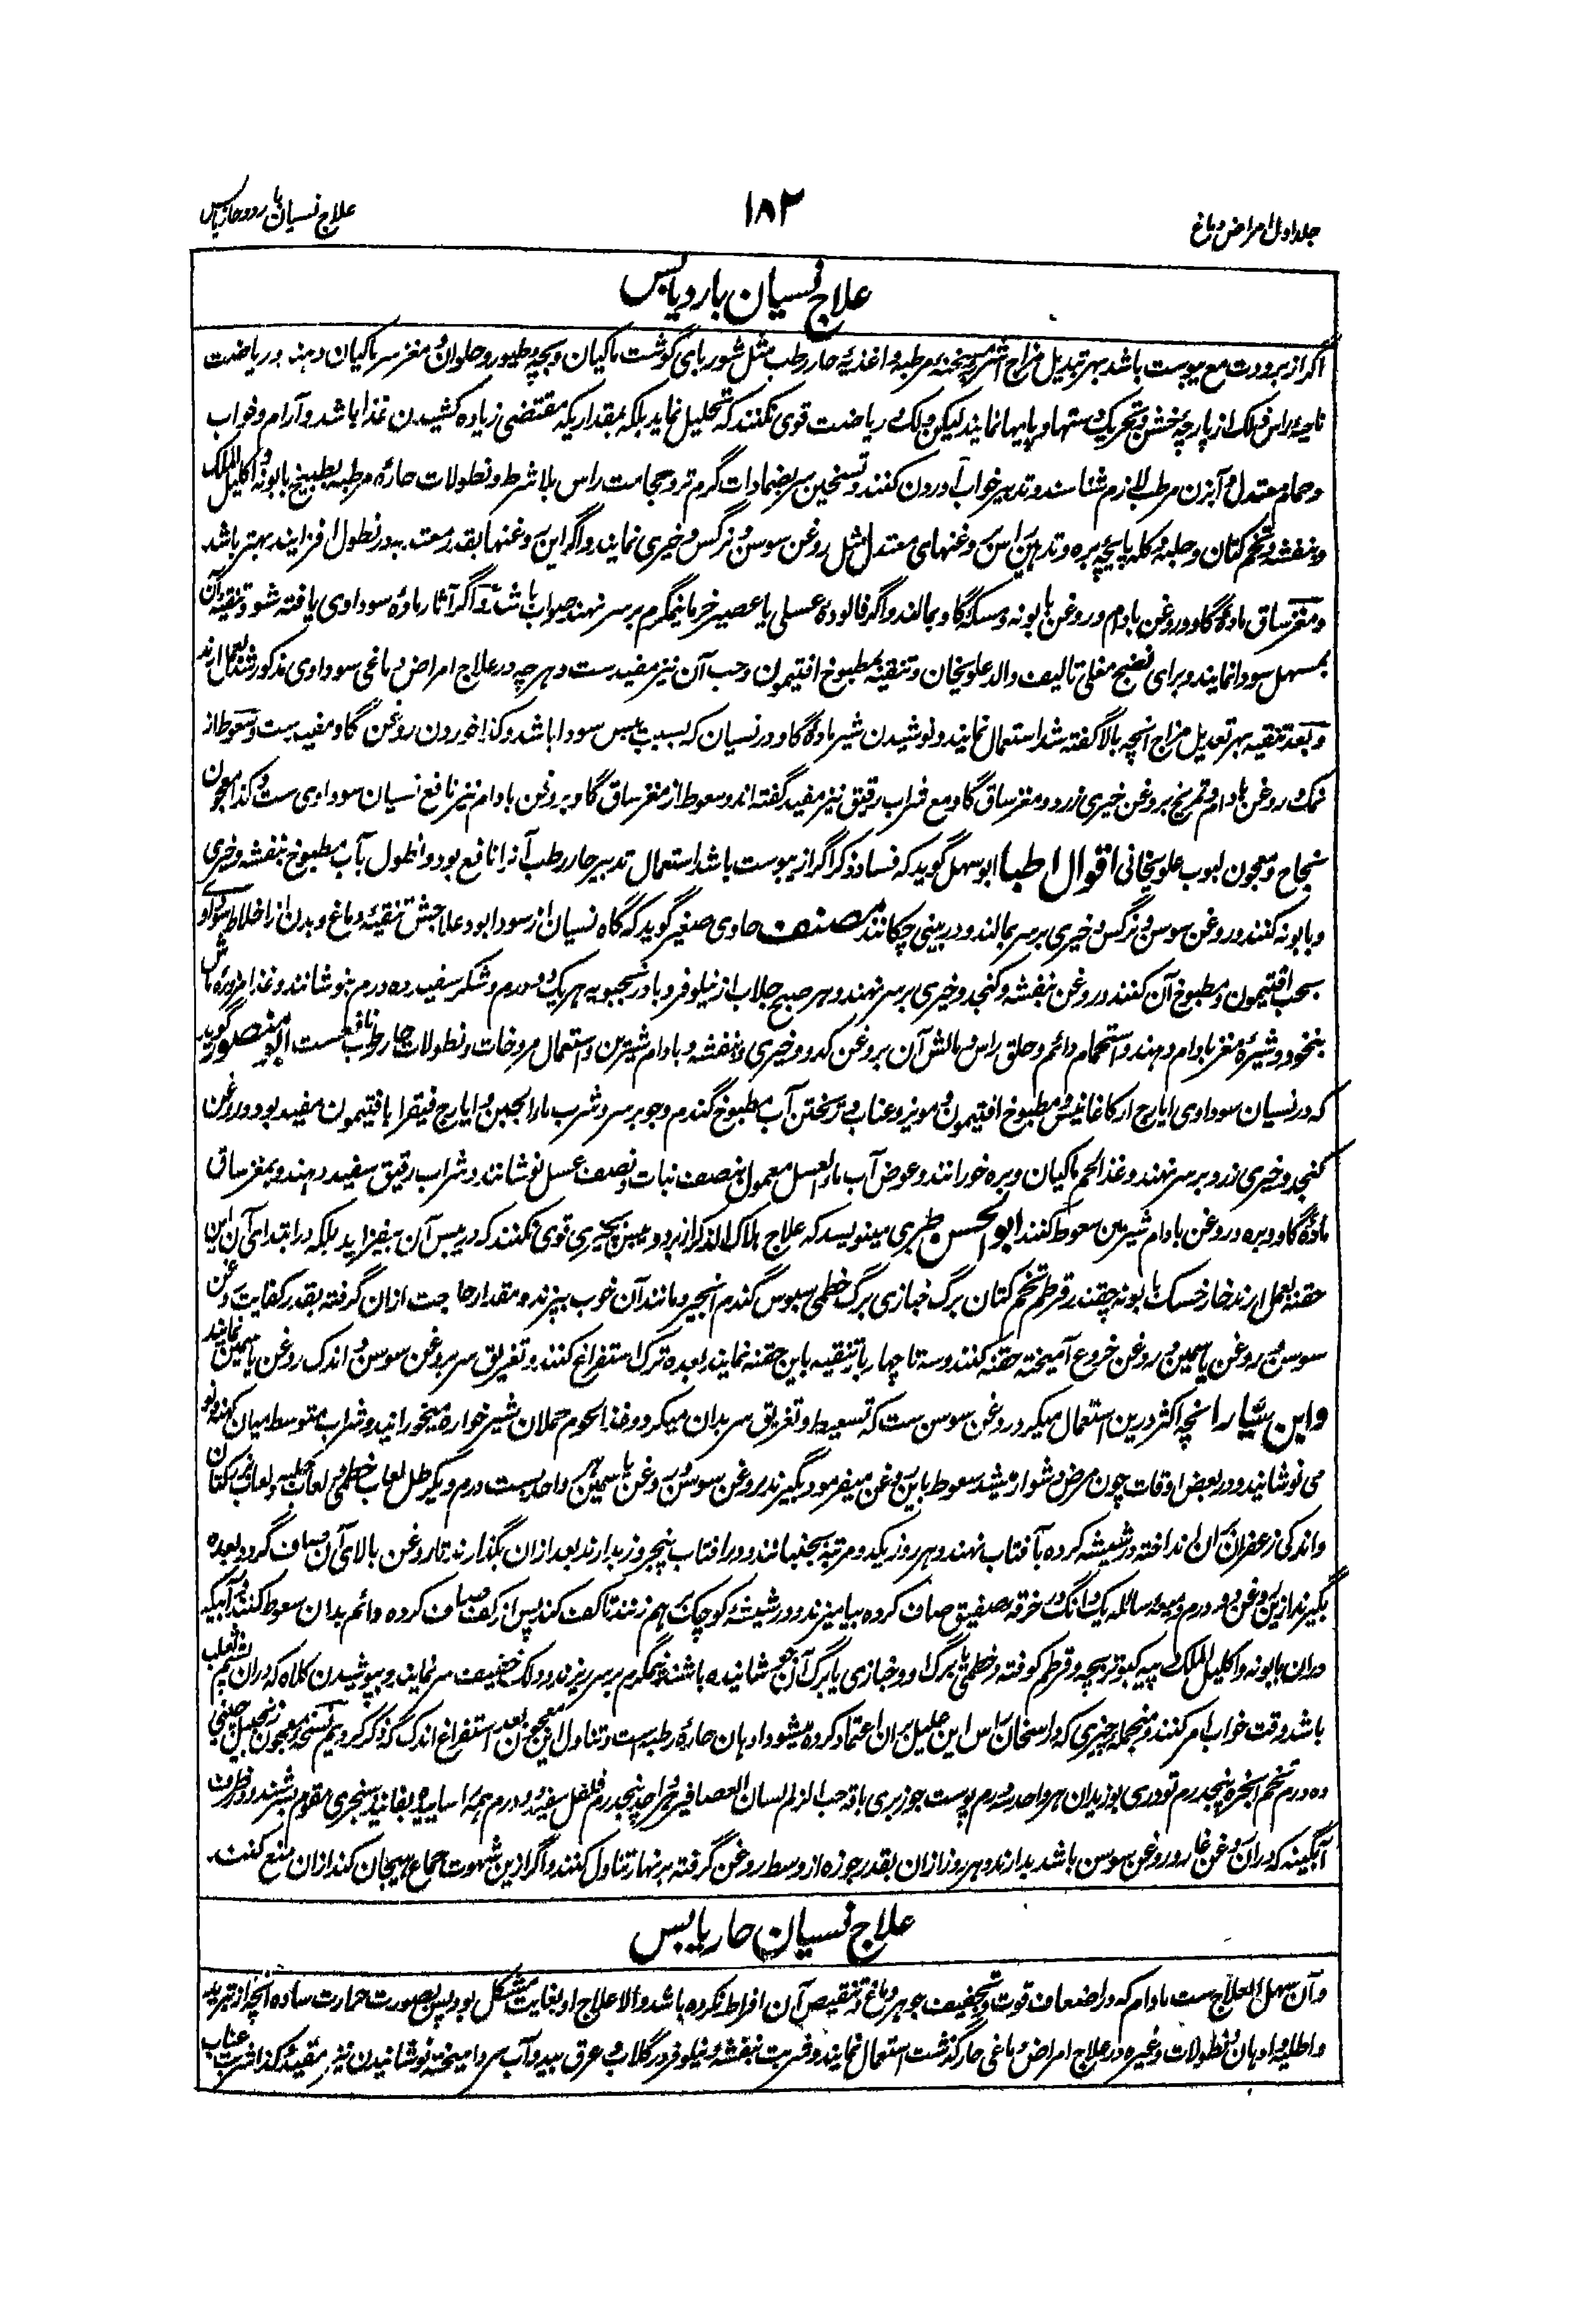 جلد اول امراض دماغ
۱۸۲
علاج نسیان بارد و حار یابس
علاج نسیان بارد یابس
اگر از برودت مع یبوست باشد بهر تبدیل مزاج اشربه مسخنه مرطبه و اغذیه حار رطب مثل شوربای گوشت ماکیان و بچه طیور و حلوان و مغز سر ماکیان دهند و ریاضت
ناحیه راس بدلک از پارچه خشن و تحریک دستها و پایها نمایند لیکن دلک و ریاضت قوی نکنند که تحلیل نماید بلکه بمقداریکه مقتضی زیاده کشیدن غذا باشد و آرام و خواب
و حمام معتدل و آبزن مرطب لازم شناسند و تدبیر خواب آوردن کنند و تسخین سر بضمادات گرم تر و حجامت راس بلا شرط و نطولات حاره مرطبه بطبیخ بابونه و اکلیل الملک
و بنفشه و تخم کتان و حلبه و کله پایچه بره و تدهین راس بروغنهای معتدل مثل روغن سوسن و نرگس و خیری نمایند و اگر این روغنها بقدر معتد به در نطول افزایند بهتر باشد
و مغز ساق ماده گاو و روغن بادام و روغن بابونه و مسکه گاو بمالند و اگر فالوده عسلی یا عصیر خرما نیمگرم بر سر نهند صواب باشد و اگر آثار ماده سوداوی یافته شود تنقیه آن
بمسهل سودا نمایند و برای نضج مغلی تالیف والد علویخان و تنقیه بمطبوخ افتیمون و حب آن نیز مفیدست و هر چه در علاج امراض دماغی سوداوی مذکور شد بعمل آرند
و بعد تنقیه بهر تعدیل مزاج آنچه بالا گفته شد استعمال نمایند و نوشیدن شیر ماده گاو در نسیان که بسبب یبس سودا باشد و کذا خوردن روغن گاو مفیدست و سعوط از
نمک و روغن بادام و تمریخ بروغن خیری زرد و مغز ساق گاو مع شراب رقیق نیز مفید گفته اند و سعوط از مغز ساق گاو بروغن بادام نیز نافع نسیان سوداوی ست و کذا معجون
نجاح و معجون لبوب علویخانی اقوال اطبا ابو سهل گوید که فساد ذکر اگر از یبوست باشد استعمال تدبیر حار رطب آنرا نافع بود و نطول بآب مطبوخ بنفشه و خیری
و بابونه کنند و روغن سوسن و نرگس و خیری بر سر بمالند و در بینی چکانند مصنف حاوی صغیر گوید که گاه نسیان از سودا بود علاجش تنقیه دماغ و بدن از اخلاط سوداوی
بحب افتیمون و مطبوخ آن کنند و روغن بنفشه و کنجد و خیری بر سر نهند و هر صبح جلاب از نیلوفر و بادرنجبویه هر یک دو درم و شکر سفید ده درم بنوشانند و غذا مزوره ماش
بنخود و شیره مغز بادام دهند و استحمام دائم و حلق راس و مالش آن بروغن کدو و خیری و بنفشه و بادام شیرین و استعمال مروخات و نطولات حار رطب نافع ست ابو منصور گوید
که در نسیان سوداوی ایارج ارکاغانیس و مطبوخ افتیمون و مویز و عناب و ریختن آب مطبوخ گندم و جو بر سر و شرب ماء الجبن و ایارج فیقرا بافتیمون مفید بود و روغن
کنجد و خیری زرد بر سر نهند و غذا لحم ماکیان و بره خورانند و عوض آب ماء العسل معمول بنصف نبات و نصف عسل نوشانند و شراب رقیق سفید دهند و بمغز ساق
ماده گاو و بره و روغن بادام شیرین سعوط کنند ابو الحسن طبری مینویسد که علاج هلاک الذکر از برد و یبس بچیزی قوی نکنند که در یبس آن بیفزاید بلکه در ابتدای آن این
حقنه بعمل آرند خار خسک بابونه چقندر قرطم تخم کتان برگ خبازی برگ خطمی سبوس گندم انجیر و مانند آن خوب بپزند و مقدار حاجت ازان گرفته بقدر کفایت روغن
سوسن و روغن یاسمین و روغن خروع آمیخته حقنه کنند و سه تا چهار بار تنقیه باین حقنه نمایند بعده ترک استفراغ کنند و تغریق سر بروغن سوسن و اندک روغن یاسمین نمایند
و ابن سیار آنچه اکثر درین استعمال میکرد روغن سوسن ست که تسعیط و تغریق سر بدان میکرد و غذا لحوم حملان شیر خواره میخورانید و شراب متوسط میان کهنه و نو
می نوشانید و در بعض اوقات چون مرض دشوار میشد سعوط باین روغن میفرمود بگیرند روغن سوسن روغن یاسمین هر واحد بست درم و یکرطل لعاب خطمی لعاب حلبه و لعاب تخم کتان
و اندکی زعفران دران انداخته در شیشه کرده بآفتاب نهند و هر روز یکدو مرتبه بجنبانند و در آفتاب پنجروز بدارند بعد ازان بگذارند تا روغن بالای آن صاف گردد بعده
بگیرند ازین روغن دو درم و میعه سائله یکدانگ در خرقه صفیق صاف کرده بیامیزند و در شیشه کوچک بر هم زنند تا کف کند پس از کف صاف کرده دائم بدان سعوط کنند و آبیکه
دران بابونه و اکلیل الملک پیه کبوتر بچه و قرطم کوفته و خطمی با برگ او و خبازی با برگ آن جوشانیده باشند نیمگرم بر سر ریزند و دلک خفیف سر نمایند و بپوشیدن کلاه که دران پشم ثعلب
باشد وقت خواب امر کنند و منجمله چیزی که در اسخان راس این علیل بران اعتماد کرده میشود ادهان حاره رطبه است و تناول این معجون بعد استفراغ اندک که ذکر کردیم نسخه معجون زنجبیل چینی
ده درم تخم انجره پنجدرم تودری بوزیدان هر واحد سه درم پوست جوز بری باقه حب الزلم لسان العصافیر هر واحد پنجدرم فلفل سفید دو درم همه را سائیده بفانید سنجری مقوم بسرشند و در ظرف
آبگینه که دران روغن غار و روغن سوسن باشد بدارند و هر روز ازان بقدر جوزه از وسط روغن گرفته بر نهار تناول کنند و اگر ازین شهوت جماع هیجان کند ازان منع کنند
علاج نسیان حار یابس
و آن سهل العلاج ست مادام که در اضعاف قوت و تجفیف جوهر دماغ و تنقیص آن افراط نکرده باشد و الا علاج او بغایت مشکل بود پس بصورت حرارت ساده آنچه از تبرید
و اطلیه و ادهان و نطولات و غیره در علاج امراض دماغی حار گذشت استعمال نمایند و شربت بنفشه و نیلوفر در گلاب و عرق بید و آب سرد آمیخته نوشانیدن نیز مفید و کذا شربت عناب